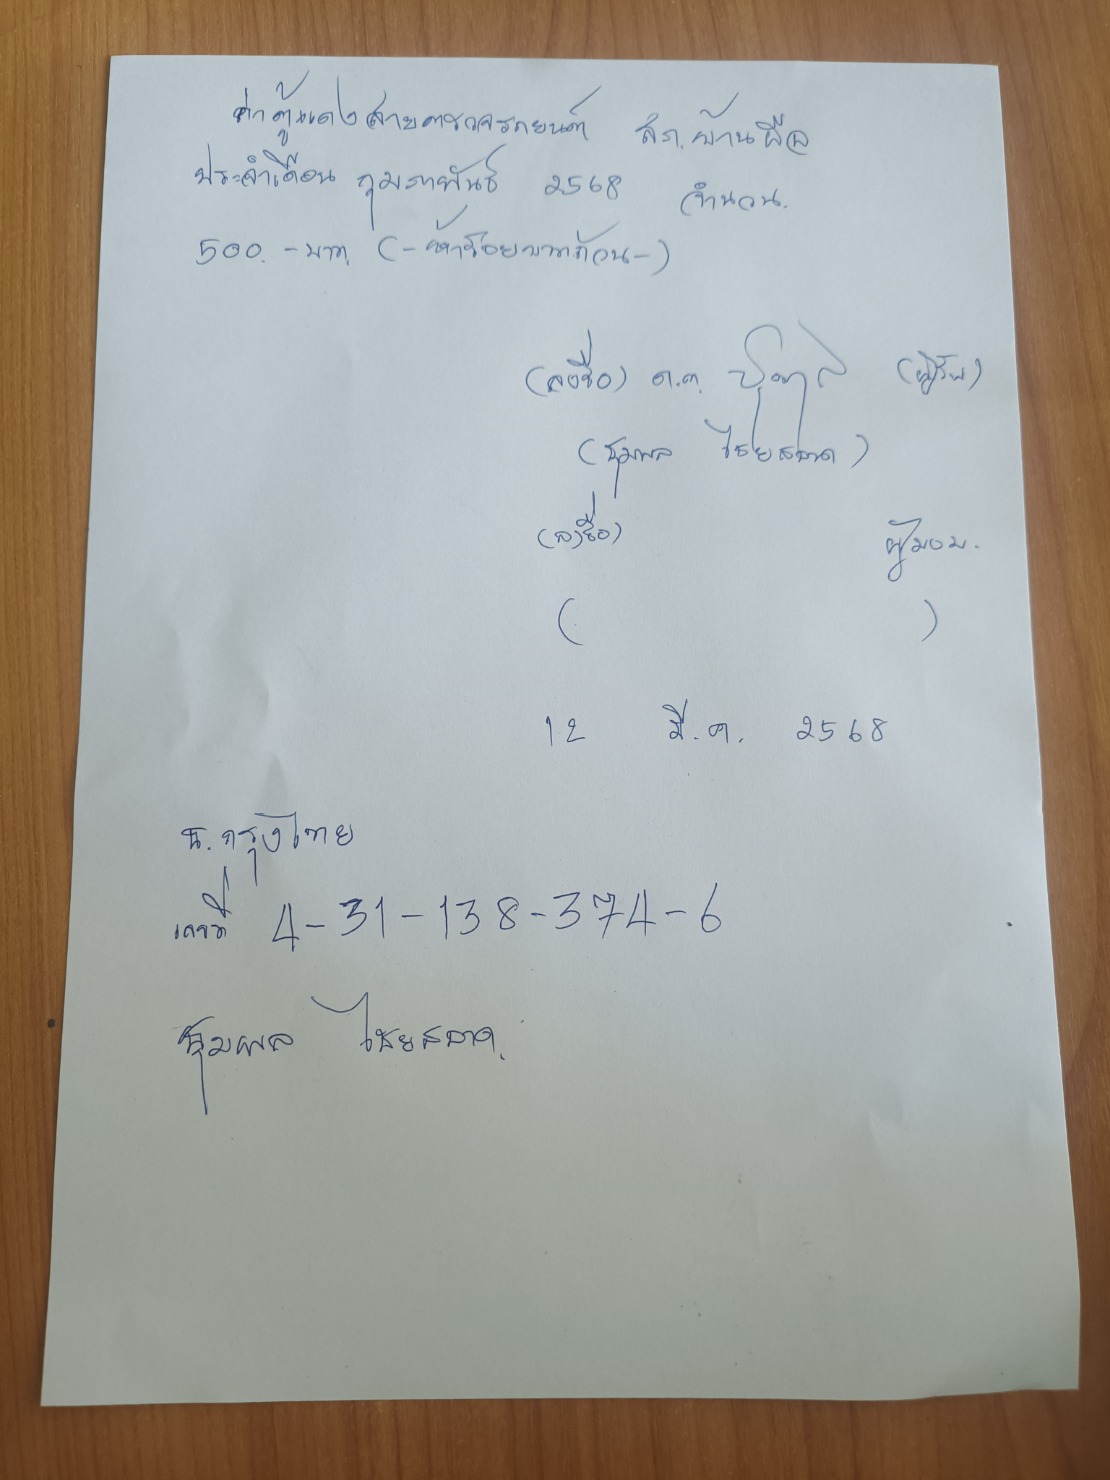 ค่าตู้แดงสายตรวจรถยนต์ สภ.บ้านผือ
ประจำเดือน กุมภาพันธ์ 2568 จำนวน.
500.-บาท (-ห้าร้อยบาทถ้วน-)
(ลงชื่อ) ด.ต. (ผู้รับ)
(ชุมพล ไชยสอาด)
(ลงชื่อ) ผู้มอบ.
( )
12 มี.ค. 2568
ธ.กรุงไทย
เลขที่ 4-31-138-374-6
ชุมพล ไชยสอาด.